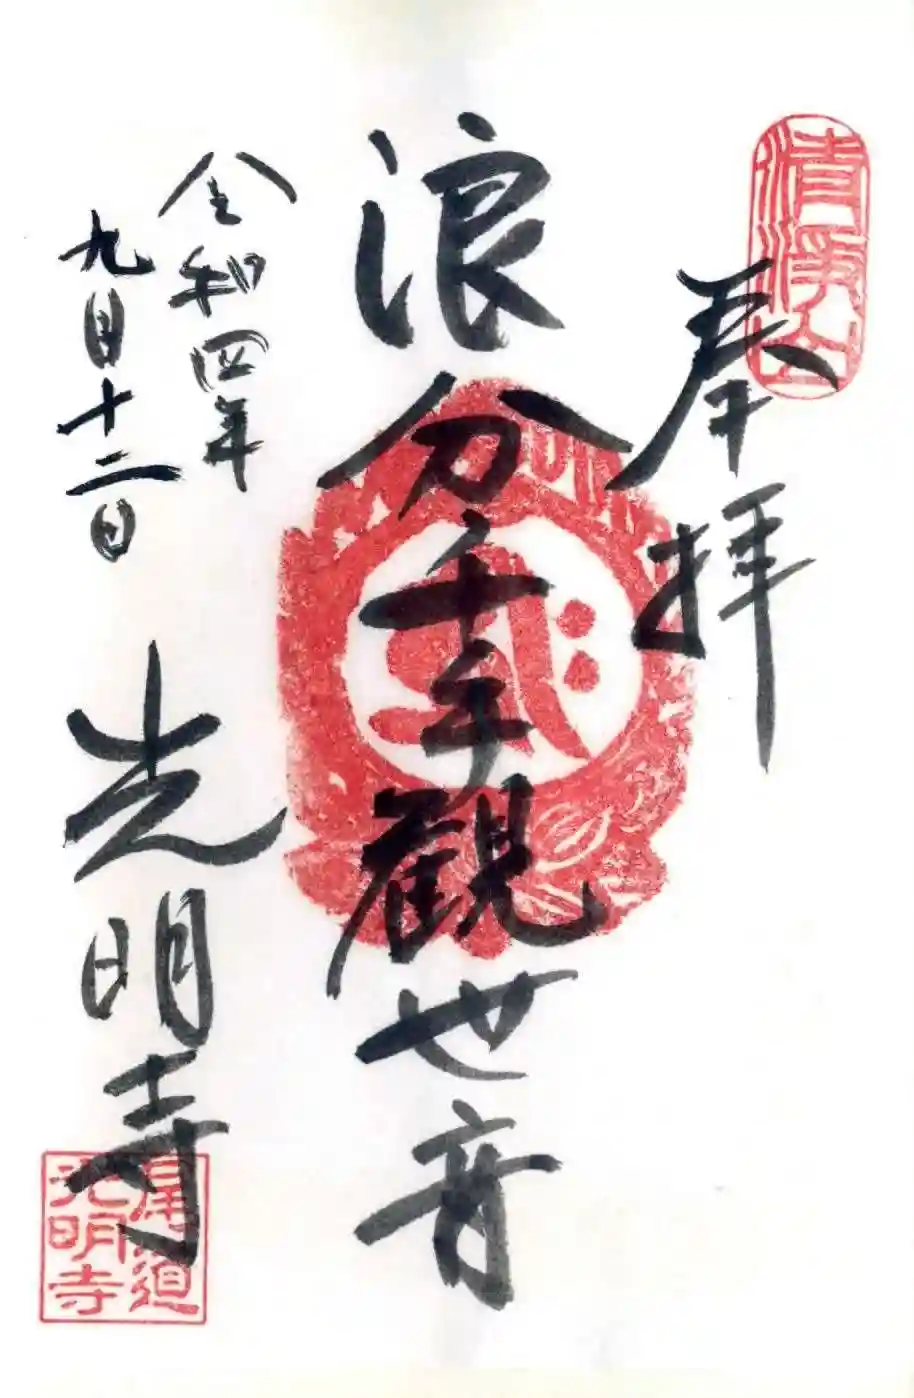 清浄山
奉拝
浪分千手観世音
令和四年
九月十二日
光明寺
尾道
光明寺